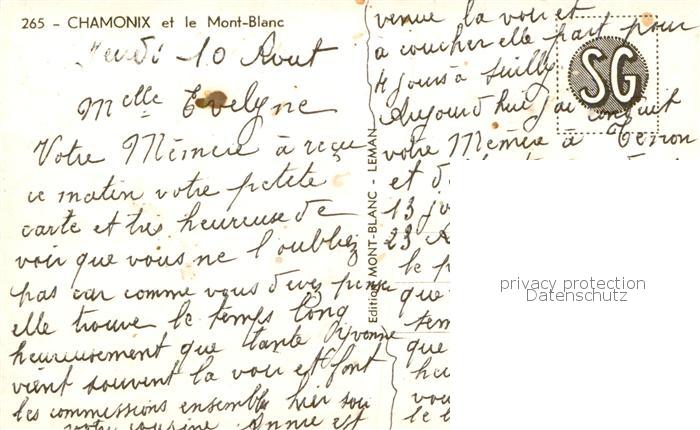 265 - CHAMONIX et le Mont-Blanc
Jeudi 10 Aout
Melle Evelyne
Votre Mémère à reçu
ce matin votre petite
carte et très heureuse de
voir que vous ne l'oubliez
pas car comme vous devez penser
elle trouve le temps long
heureusement que tante Yvonne
vient souvent la voir et font
les commissions ensemble hier soir
votre cousine Annie est
Edition MONT-BLANC - LEMAN
venue la voir et
à coucher elle part pour
4 jours à
SG
Aujourd'hui j'ai conduit
votre Mémère à
et d
13 jo
23 A
le p
que
tem
que
heu
vou
le b
privacy protection
Datenschutz